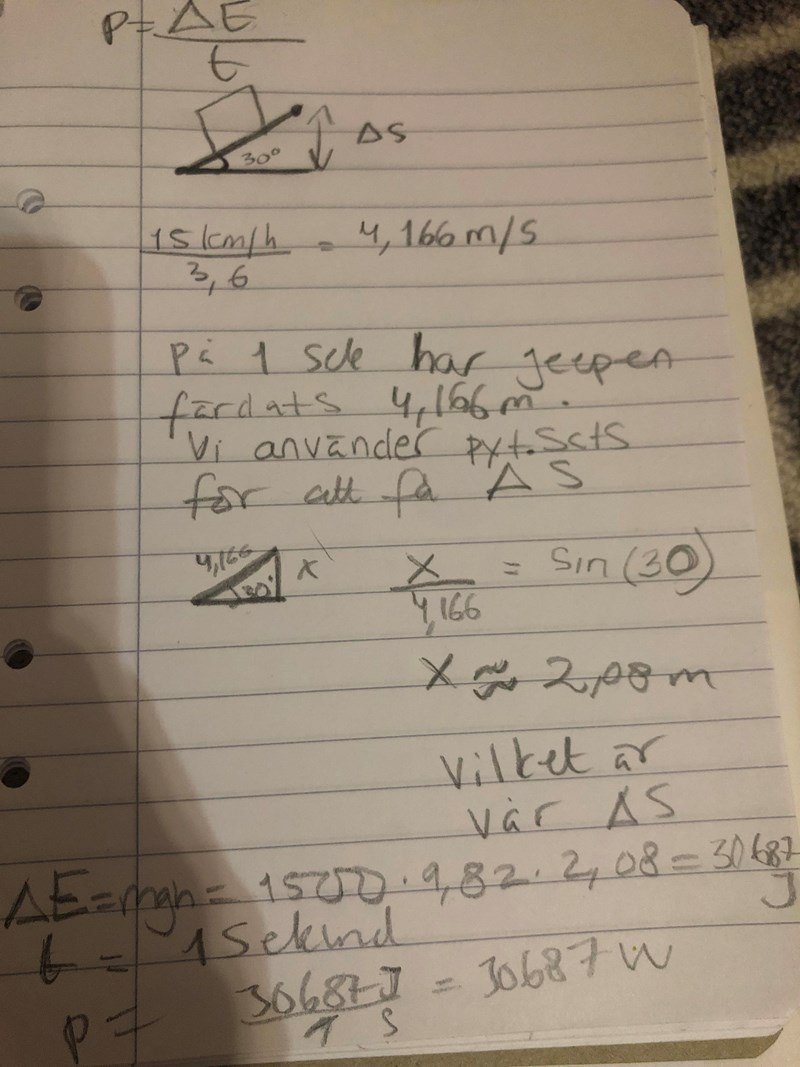 P = ΔE
t
30°
ΔS
15 km/h = 4,166 m/s
3,6
På 1 sek har jeepen
färdats 4,166 m.
Vi använder pyt.sats
för att få ΔS
4,166 x
30°
x = Sin(30)
4,166
X ≈ 2,08 m
Vilket är
vår ΔS
ΔE = mgh = 1500 · 9,82 · 2,08 = 30687 J
t = 1 Sekund
P = 30687 J = 30687 W
1 s